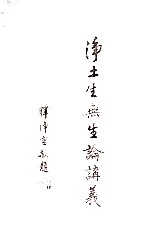 淨土生無生論講義
釋淨空敬題